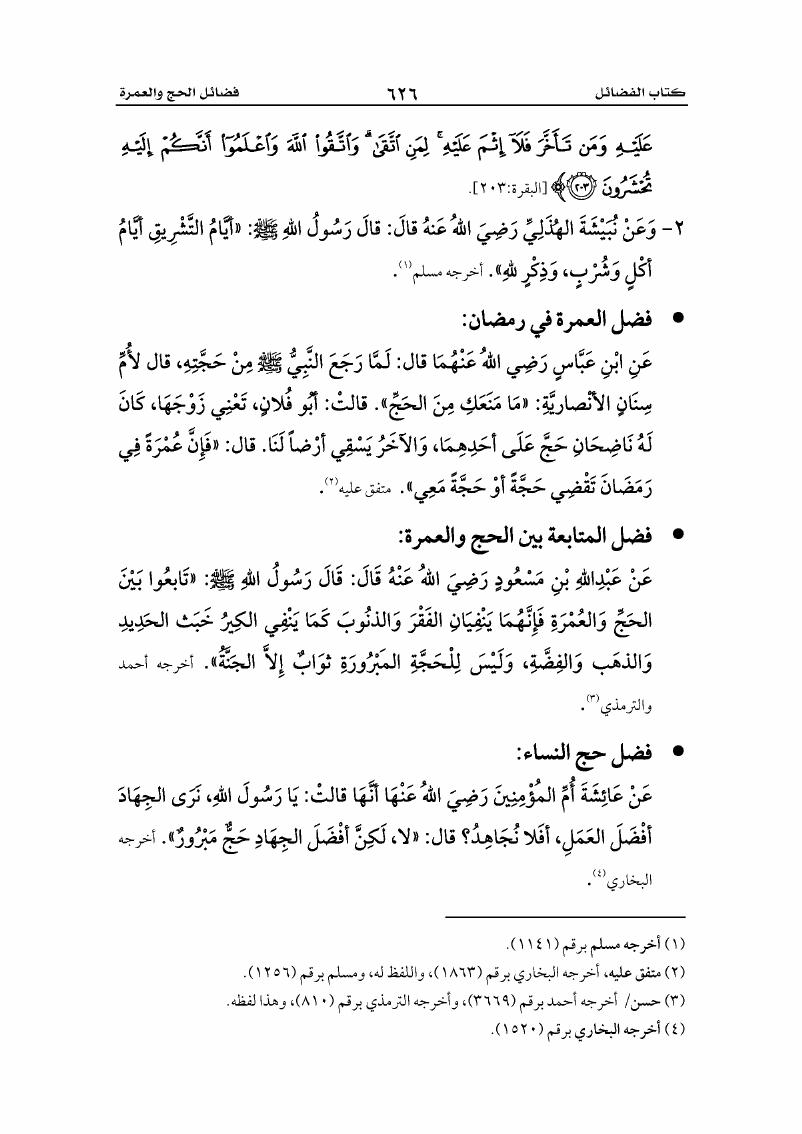 كتاب الفضائل ٦٢٦ فضائل الحج والعمرة
عَلَيْهِ وَمَن تَأَخَّرَ فَلَآ إِثْمَ عَلَيْهِ ۚ لِمَنِ ٱتَّقَىٰ ۗ وَٱتَّقُوا۟ ٱللَّهَ وَٱعْلَمُوٓا۟ أَنَّكُمْ إِلَيْهِ
تُحْشَرُونَ ﴿٢٠٣﴾ [البقرة:٢٠٣].
٢- وَعَنْ نُبَيْشَةَ الهُذَلِيِّ رَضِيَ اللهُ عَنهُ قالَ: قالَ رَسُولُ اللهِ ﷺ: «أيَّامُ التَّشْرِيقِ أيَّامُ
أكْلٍ وَشُرْبٍ، وَذِكْرٍ للهِ». أخرجه مسلم(١).
● فضل العمرة في رمضان:
عَنِ ابْنِ عَبَّاسٍ رَضِي اللهُ عَنْهُمَا قال: لَـمَّا رَجَعَ النَّبِيُّ ﷺ مِنْ حَجَّتِهِ، قال لأُمِّ
سِنَانٍ الأنْصاريَّةِ: «مَا مَنَعَكِ مِنَ الحَجِّ». قالتْ: أبُو فُلانٍ، تَعْنِي زَوْجَهَا، كَانَ
لَهُ نَاضِحَانِ حَجَّ عَلَى أحَدِهِمَا، وَالآخَرُ يَسْقِي أرْضاً لَنَا. قال: «فَإنَّ عُمْرَةً فِي
رَمَضَانَ تَقْضِي حَجَّةً أوْ حَجَّةً مَعِي». متفق عليه(٢).
● فضل المتابعة بين الحج والعمرة:
عَنْ عَبْدِاللهِ بْنِ مَسْعُودٍ رَضِيَ اللهُ عَنْهُ قَالَ: قَالَ رَسُولُ اللهِ ﷺ: «تَابِعُوا بَيْنَ
الحَجِّ وَالعُمْرَةِ فَإنَّهُمَا يَنْفِيَانِ الفَقْرَ وَالذنُوبَ كَمَا يَنْفِي الكِيرُ خَبَث الحَدِيدِ
وَالذهَب وَالفِضَّةِ، وَلَيْسَ لِلْحَجَّةِ المَبْرُورَةِ ثوَابٌ إلاَّ الجَنَّةُ». أخرجه أحمد
والترمذي(٣).
● فضل حج النساء:
عَنْ عَائِشَةَ أُمِّ المُؤْمِنِينَ رَضِيَ اللهُ عَنْهَا أنَّهَا قالتْ: يَا رَسُولَ اللهِ، نَرَى الجِهَادَ
أفْضَلَ العَمَلِ، أفَلا نُجَاهِدُ؟ قال: «لا، لَكِنَّ أفْضَلَ الجِهَادِ حَجٌّ مَبْرُورٌ». أخرجه
البخاري(٤).
(١) أخرجه مسلم برقم (١١٤١).
(٢) متفق عليه، أخرجه البخاري برقم (١٨٦٣)، واللفظ له، ومسلم برقم (١٢٥٦).
(٣) حسن/ أخرجه أحمد برقم (٣٦٦٩)، وأخرجه الترمذي برقم (٨١٠)، وهذا لفظه.
(٤) أخرجه البخاري برقم (١٥٢٠).